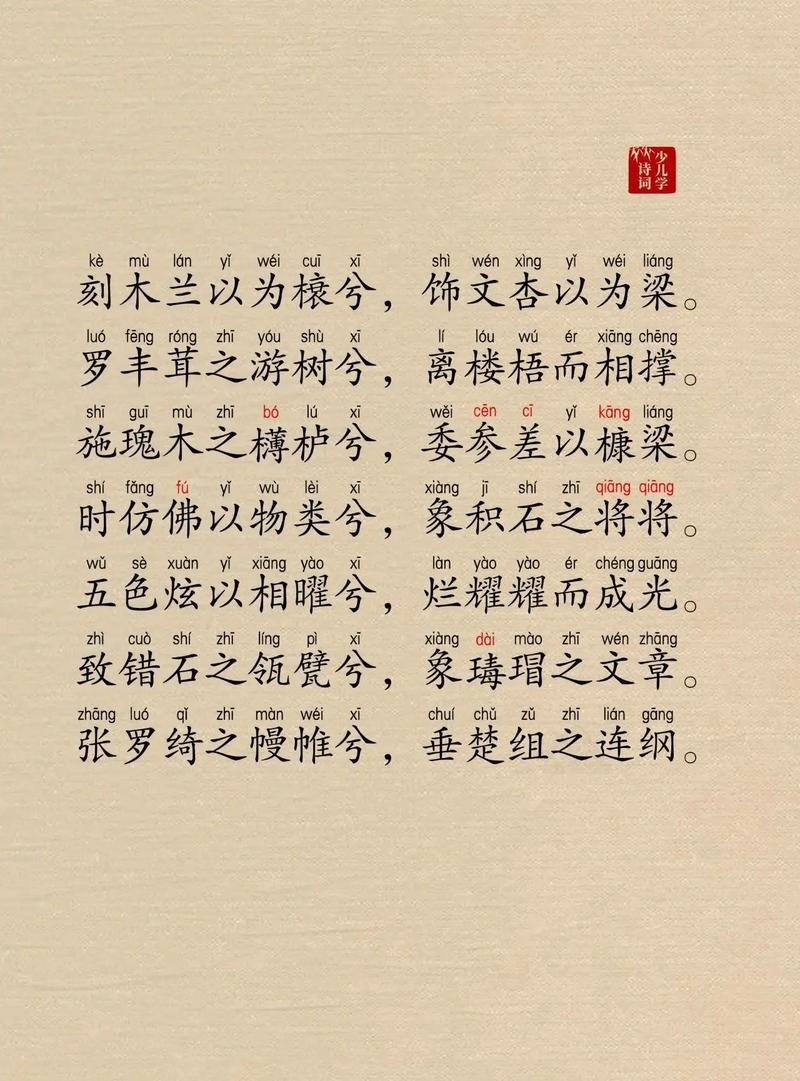 少儿学
诗词
kè mù lán yǐ wéi cuī xī shì wén xìng yǐ wéi liáng
刻木兰以为榱兮，饰文杏以为梁。
luó fēng róng zhī yóu shù xī lí lóu wú ér xiāng chēng
罗丰茸之游树兮，离楼梧而相撑。
shī guī mù zhī bó lú xī wěi cēn cī yǐ kāng liáng
施瑰木之欂栌兮，委参差以槺梁。
shí fǎng fú yǐ wù lèi xī xiàng jī shí zhī qiāng qiāng
时仿佛以物类兮，象积石之将将。
wǔ sè xuàn yǐ xiāng yào xī làn yào yào ér chéng guāng
五色炫以相曜兮，烂耀耀而成光。
zhì cuò shí zhī líng pì xī xiàng dài mào zhī wén zhāng
致错石之瓴甓兮，象瑇瑁之文章。
zhāng luó qǐ zhī màn wéi xī chuí chǔ zǔ zhī lián gāng
张罗绮之幔帷兮，垂楚组之连纲。